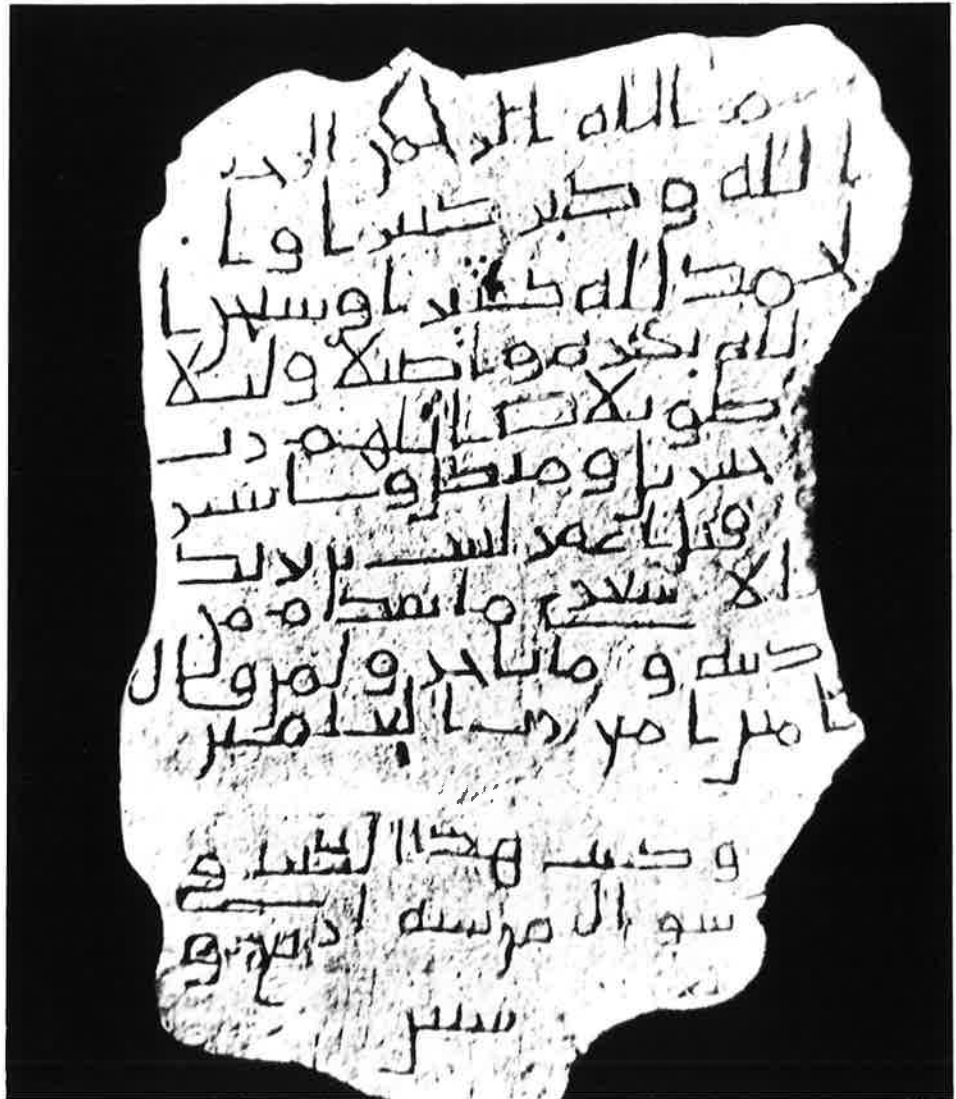 بسم الله الرحمن الرحيم
الله وكبر كبيرا وا
لحمد لله كثيرا وسبحن
الله بكرة واصيلا وليلا
طويلا اللهم رب
جبريل وميكل واسر
فيل اغفر لثبت بن يزيد
الاشعري ما تقدم من
ذنبه وما تاخر ولمن قال
امين امين رب العلمين
وكتبت هذا الكتب في
شوال من سنة اربع و
ستين